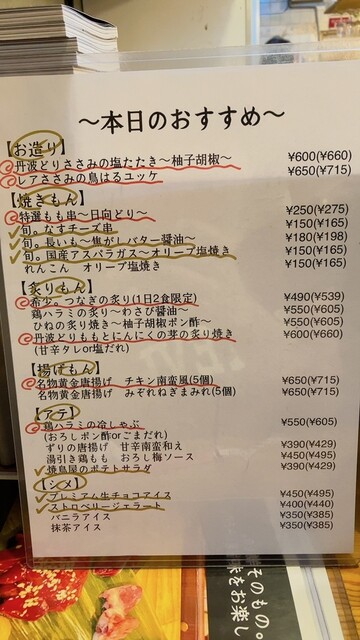 ～本日のおすすめ～
【お造り】
丹波どりささみの塩たたき～柚子胡椒～ ¥600(¥660)
レアささみの鳥はるユッケ ¥650(¥715)
【焼きもん】
特選もも串～日向どり～ ¥250(¥275)
旬。なすチーズ串 ¥150(¥165)
旬。長いも～焦がしバター醤油～ ¥180(¥198)
旬。国産アスパラガス～オリーブ塩焼き ¥150(¥165)
れんこん オリーブ塩焼き ¥150(¥165)
【炙りもん】
希少。つなぎの炙り(1日2食限定) ¥490(¥539)
鶏ハラミの炙り～わさび醤油～ ¥550(¥605)
ひねの炙り焼き～柚子胡椒ポン酢～ ¥550(¥605)
丹波どりももとにんにくの芽の炙り焼き ¥600(¥660)
(甘辛タレor塩だれ)
【揚げもん】
名物黄金唐揚げ チキン南蛮風(5個) ¥650(¥715)
名物黄金唐揚げ みぞれねぎまみれ(5個) ¥650(¥715)
【アテ】
鶏ハラミの冷しゃぶ ¥550(¥605)
(おろしポン酢orごまだれ)
ずりの唐揚 甘辛南蛮和え ¥390(¥429)
湯引き鶏もも おろし梅ソース ¥450(¥495)
焼鳥屋のポテトサラダ ¥390(¥429)
【シメ】
プレミアム生チョコアイス ¥450(¥495)
ストロベリージェラート ¥400(¥440)
バニラアイス ¥350(¥385)
抹茶アイス ¥350(¥385)
そのもの
をお楽し